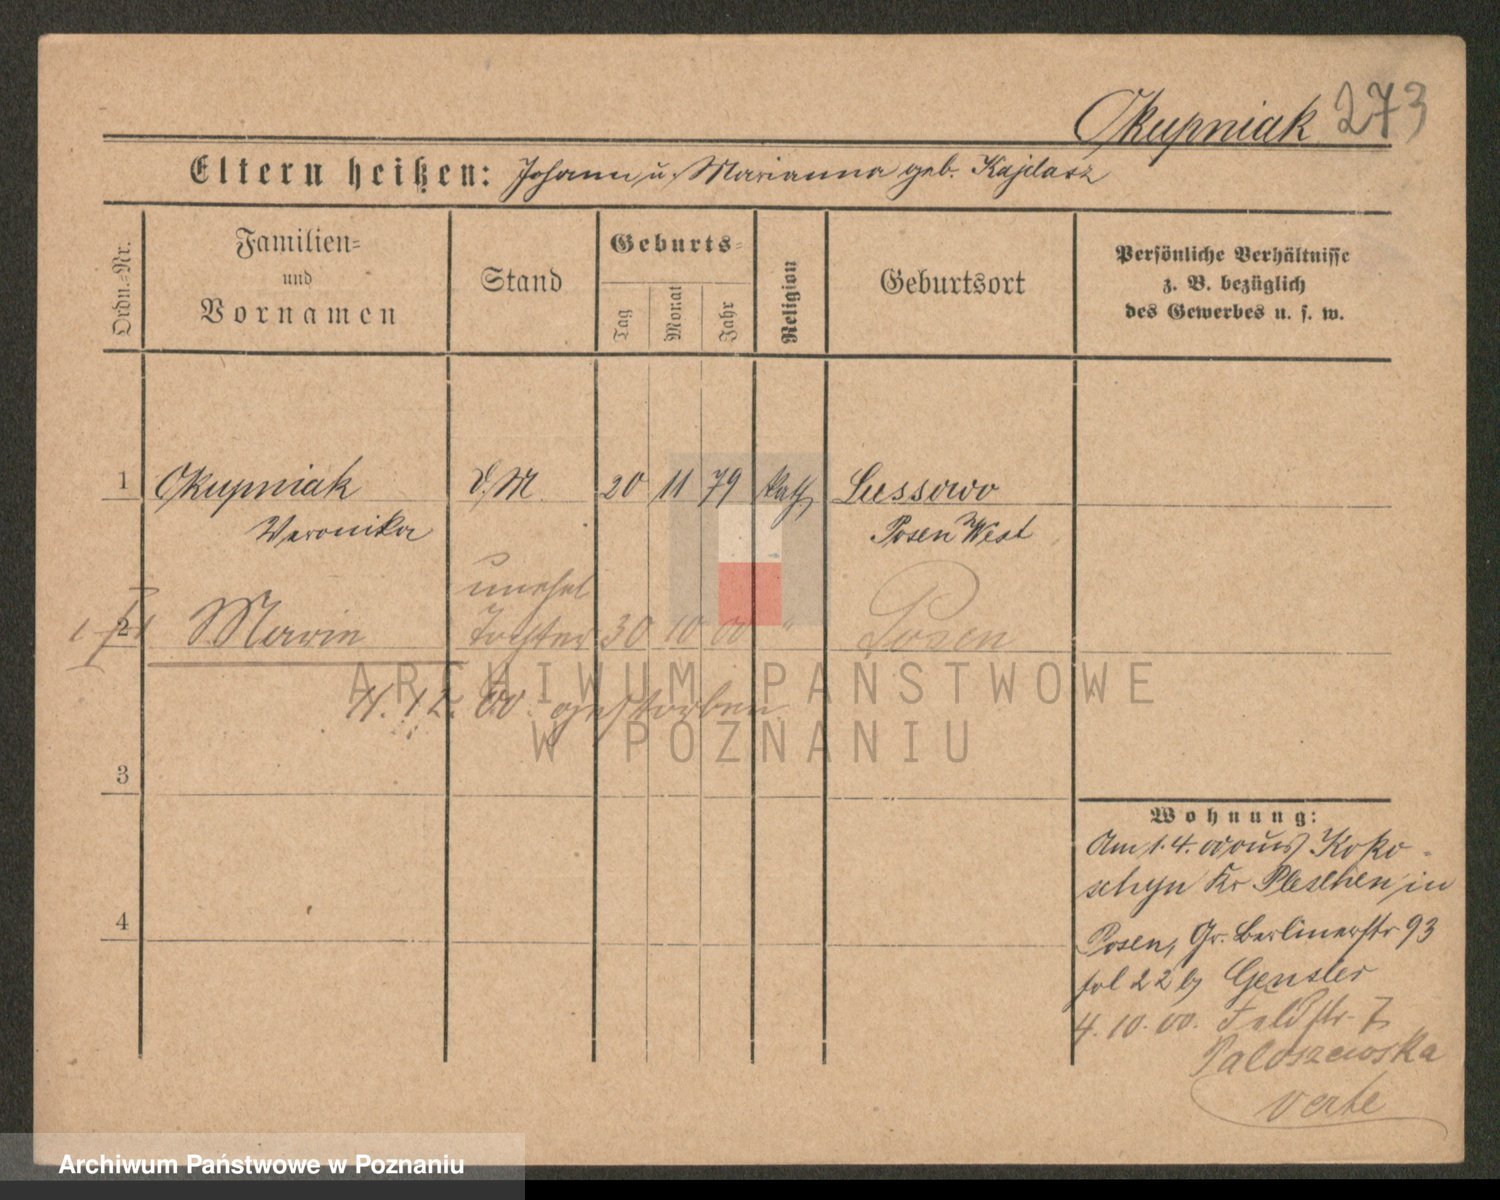 Okupniak 273
Eltern heißen: Johann u. Marianna geb. Kajdasz
Ordn.-Nr.
Familien-
und
Vornamen
Stand
Geburts-
Tag
Monat
Jahr
Religion
Geburtsort
Persönliche Verhältnisse
z. B. bezüglich
des Gewerbes u. s. w.
1 Okupniak d. M. 20 11 79 kath Lussowo
Veronika Posen West
unehel
2 Marie Tochter 30 10 00 " Posen
4. 12. 00. gestorben
3
4
Wohnung:
Am 1. 4. 00 aus Koko-
schyn Kr Pleschen in
Posen, Gr. Berlinerstr 93
fol 22 b Gensler
4. 10. 00. Feldstr. 7
verte
ARCHIWUM PAŃSTWOWE
W POZNANIU
Archiwum Państwowe w Poznaniu